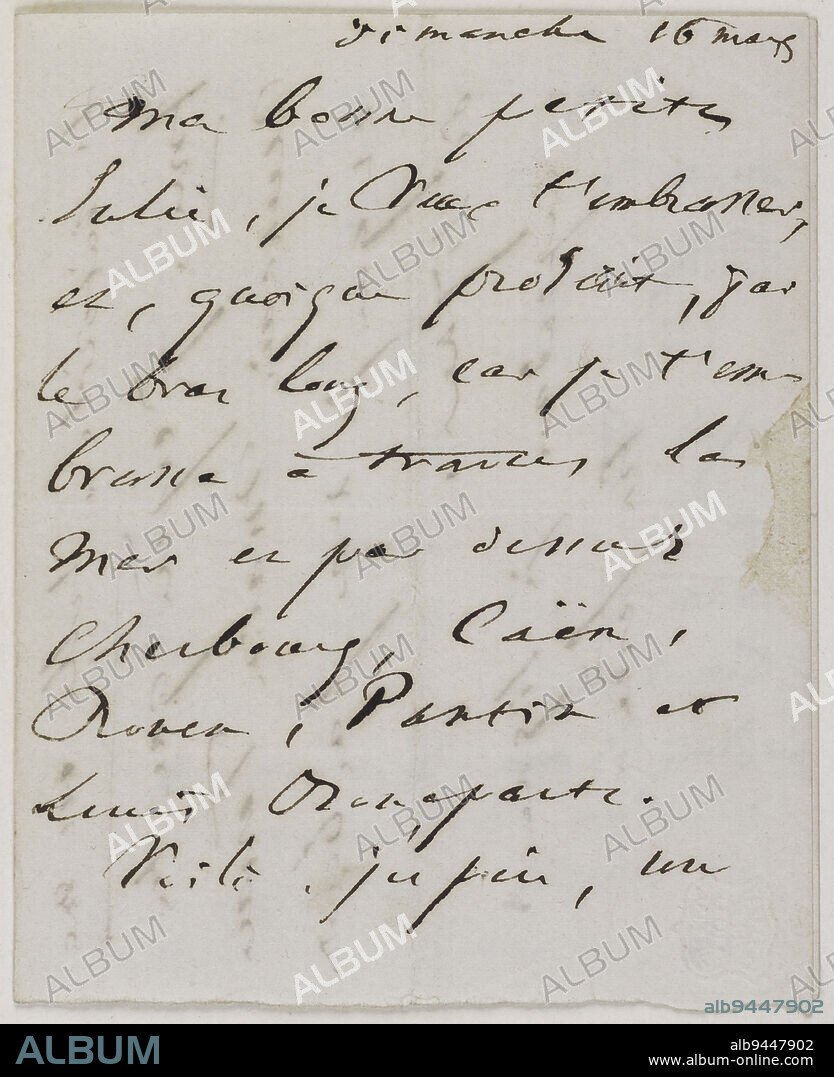 dimanche 16 mars
Ma bonne petite
Julie, je veux t'embrasser,
et, quoique proscrit, j'ai
le bras long, car je t'em
brasse à travers la
mer et par dessus
Cherbourg, Caën,
Rouen, Pantin et
Louis Bonaparte.
Voilà, j'espère, un
ALBUM
alb9447902
ALBUM
alb9447902
www.album-online.com